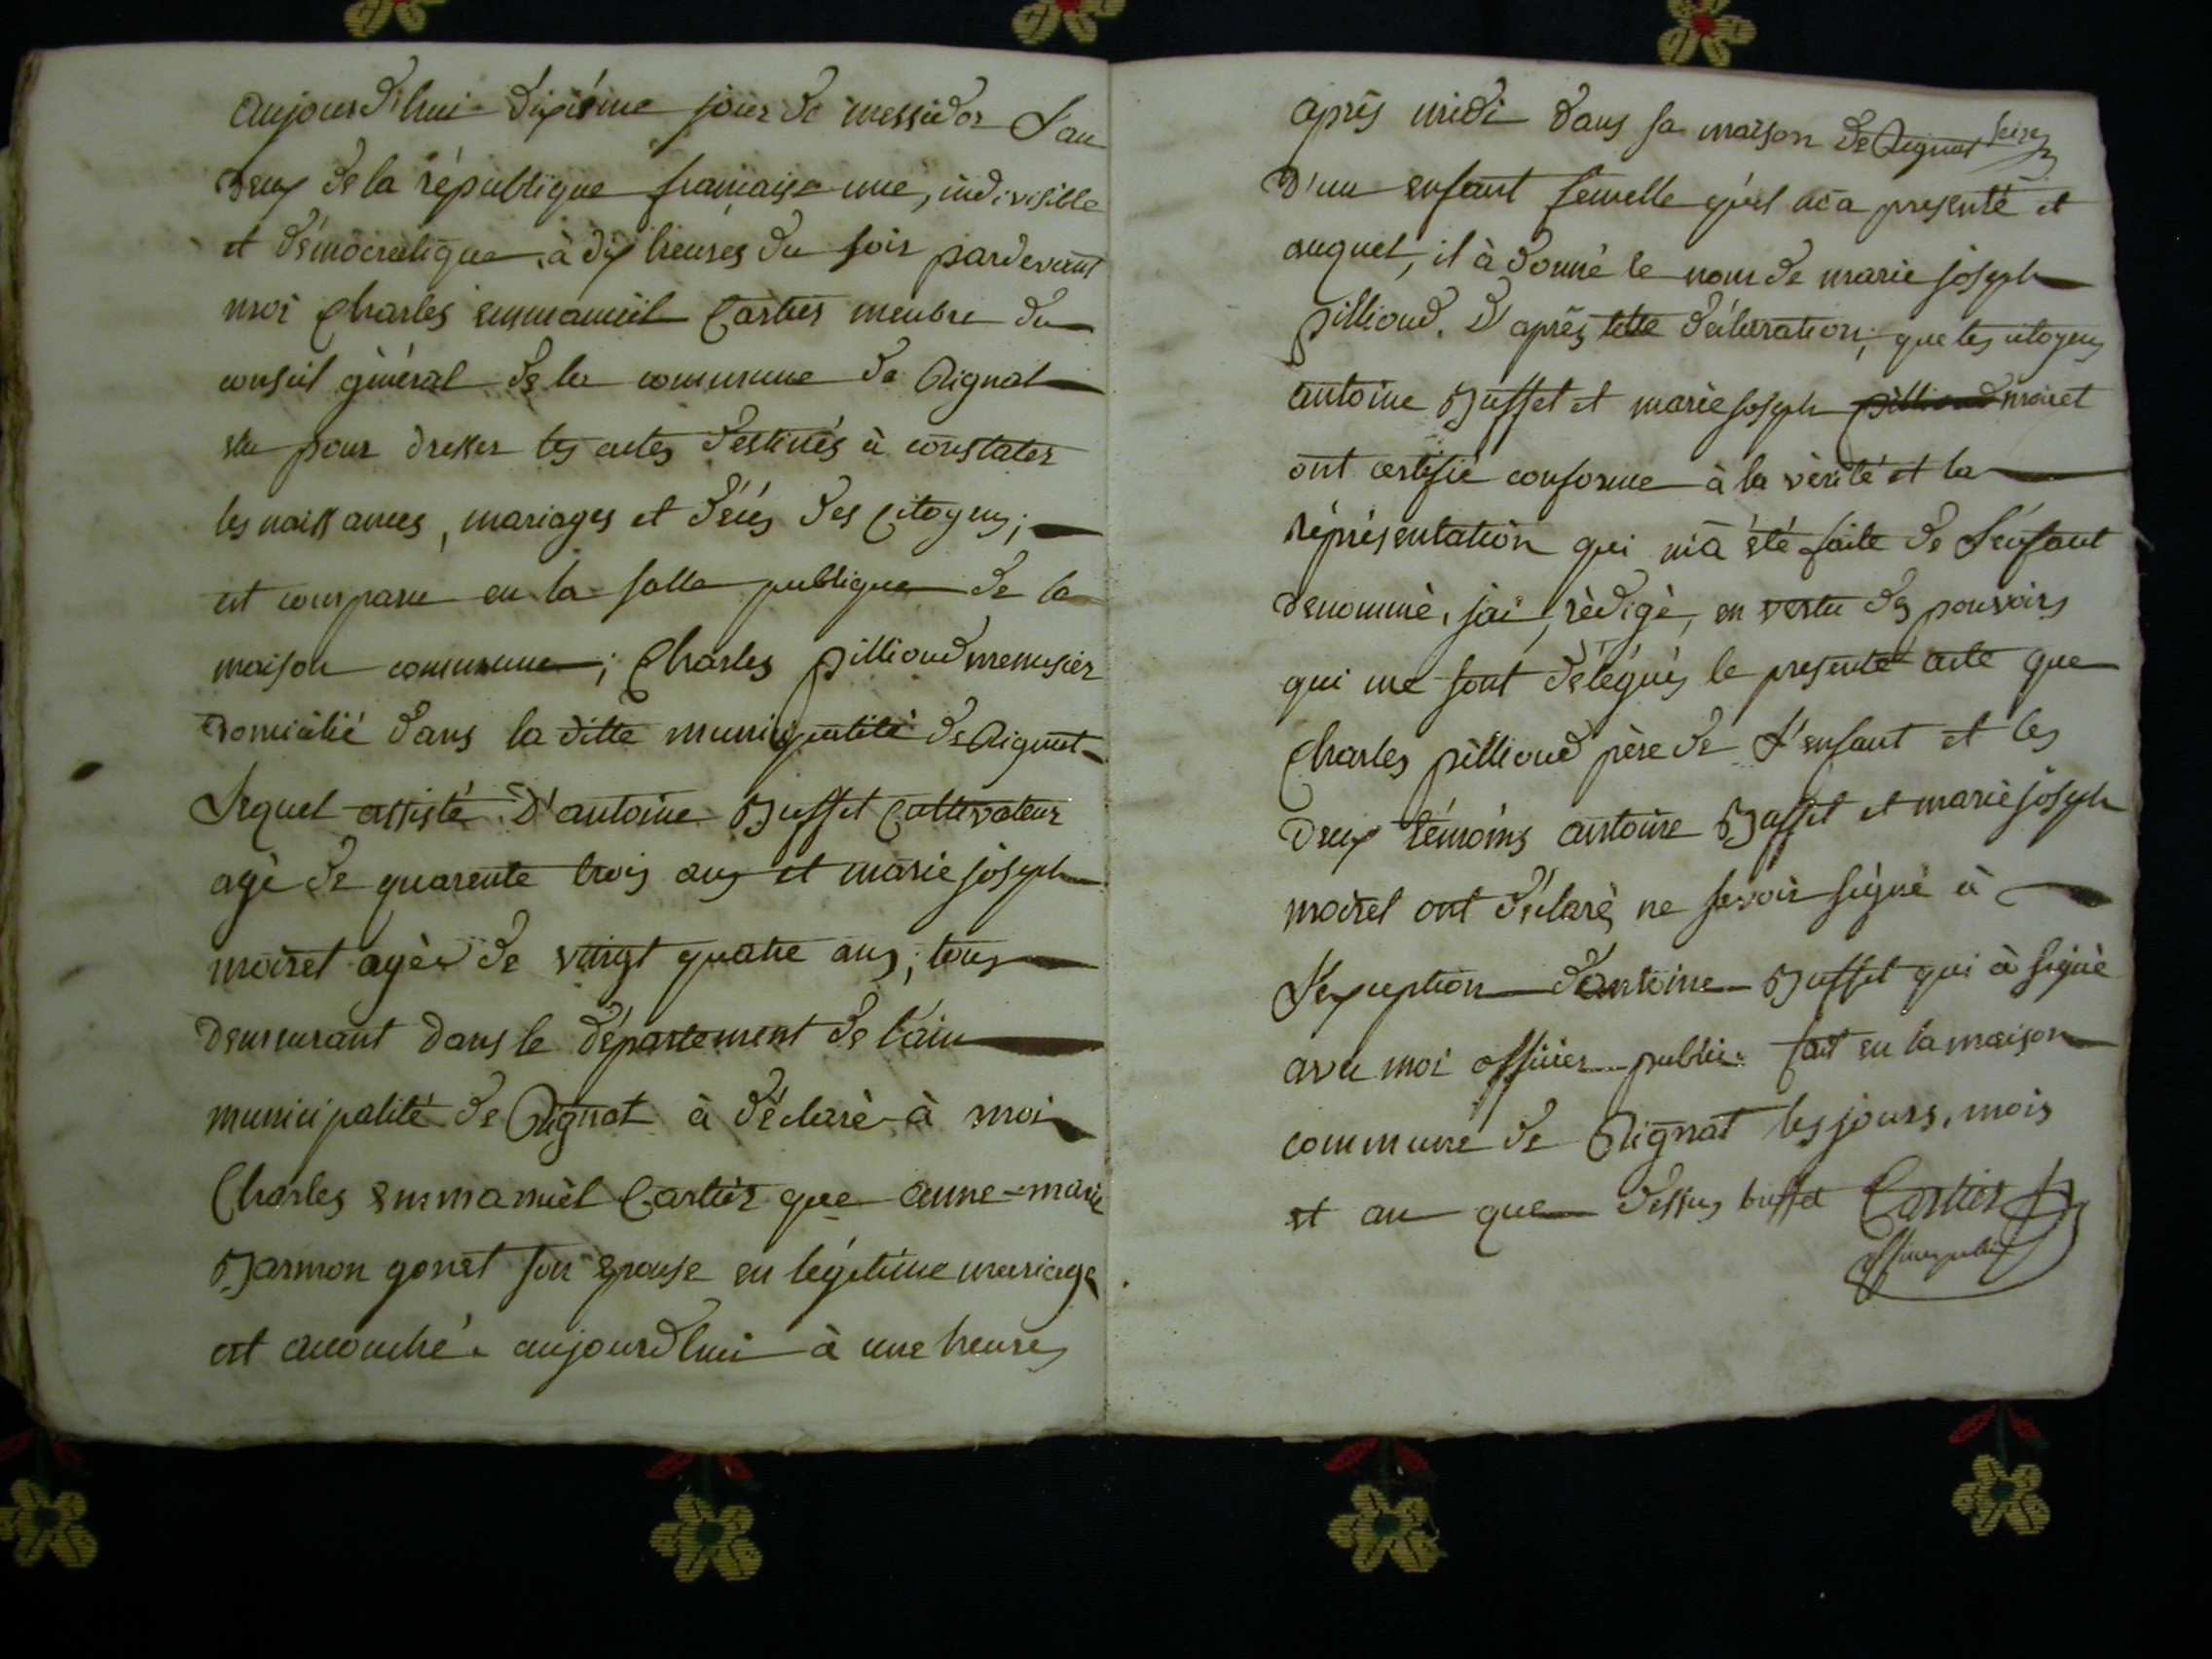 aujourd'hui dixiéme jour de messidor L'an
deux de la république francaise une, indivisible
et démocratique, à dix heures du soir pardevant
moi Charles emmanuël Cartier menbre du
conseil général de la commune de Rignat
élu pour dresser les actes destinés à constater
les naissances, mariages et décés des Citoyens;
est comparu en la salle publique de la
maison commune; Charles pillioud menusier
domicilié dans la ditte municipalité de Rignat
Lequel assisté D'antoine Buffet Cultivateur
agé de quarente trois ans et marie joseph
moiret agée de vingt quatre ans, tous
demeurant dans le département de l'ain
municipalité de Rignat à déclaré à moi
Charles emmanuël Cartier que anne-marie
Barmon gonet son epouse en légitime mariage
est accouché aujourdhui à une heures
après midi dans sa maison de Rignat
D'un enfant femelle qu'il m'a presenté et
auquel, il à donné le nom de marie joseph
pillioud. D'après cette déclaration, que les citoyens
antoine Buffet et marie joseph pillioud moiret
ont certifié conforme à la vérité et la
répresentation qui m'a été faite de L'enfant
denommé, jai, rédigé, en vertu des pouvoirs
qui me sont délégués le presente acte que
Charles pillioud père de L'enfant et les
deux témoins antoine Buffet et marie joseph
moiret ont déclaré, ne savoir signé à
L'exception d'antoine Buffet qui à signé
avec moi officier public. fait en la maison
commune de Rignat les jours, mois
et an que dessus buffet Cartier
officier public